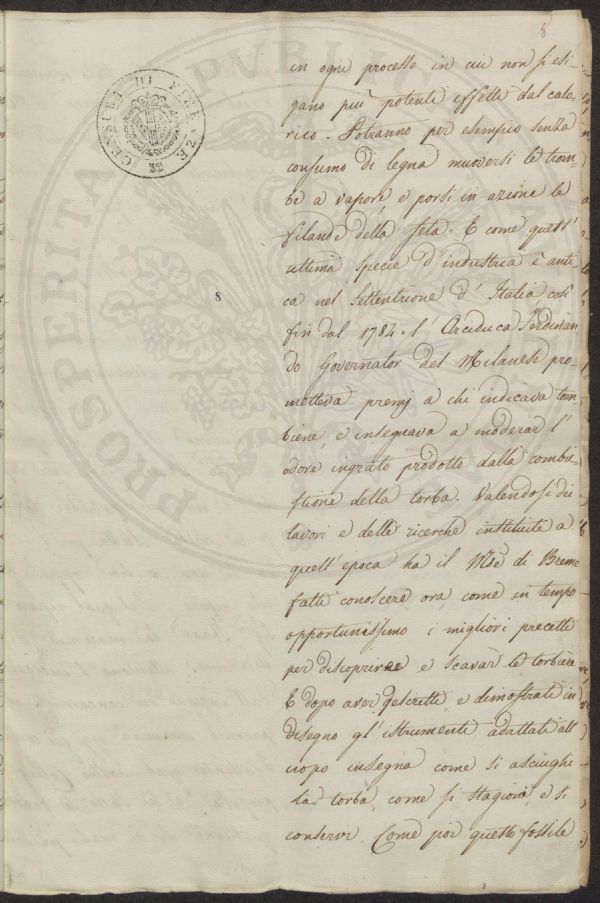 8
CENSURA DI FIRENZE
8
in ogni processo in cui non si esi-
gano più potenti effetti dal calo-
rico. Potranno per esempio senza
consumo di legna muoversi le trom-
be a vapore, e porsi in azione le
filande della seta. E come quest'
ultima specie d'industria è anti-
ca nel Settentrione d'Italia, così
fin dal 1784. l'Arciduca Ferdinan-
do Governator del Milanese pro-
metteva premj a chi indicava tor-
biere, e insegnava a moderar l'
odore ingrato prodotto dalla combu-
stione della torba. Valendosi dei
lavori e delle ricerche instituite a
quell'epoca ha il Mse di Breme
fatti conoscere ora, come in tempo
opportunissimo i migliori precetti
per discoprire e scavar le torbiere
E dopo aver descritti, e dimostrati in
disegno gl'istrumenti adattati all'
uopo insegna come si asciughi
la torba, come si stagioni, e si
conservi. Come poi questo fossile
PROSPERITÀ PUBBLICA